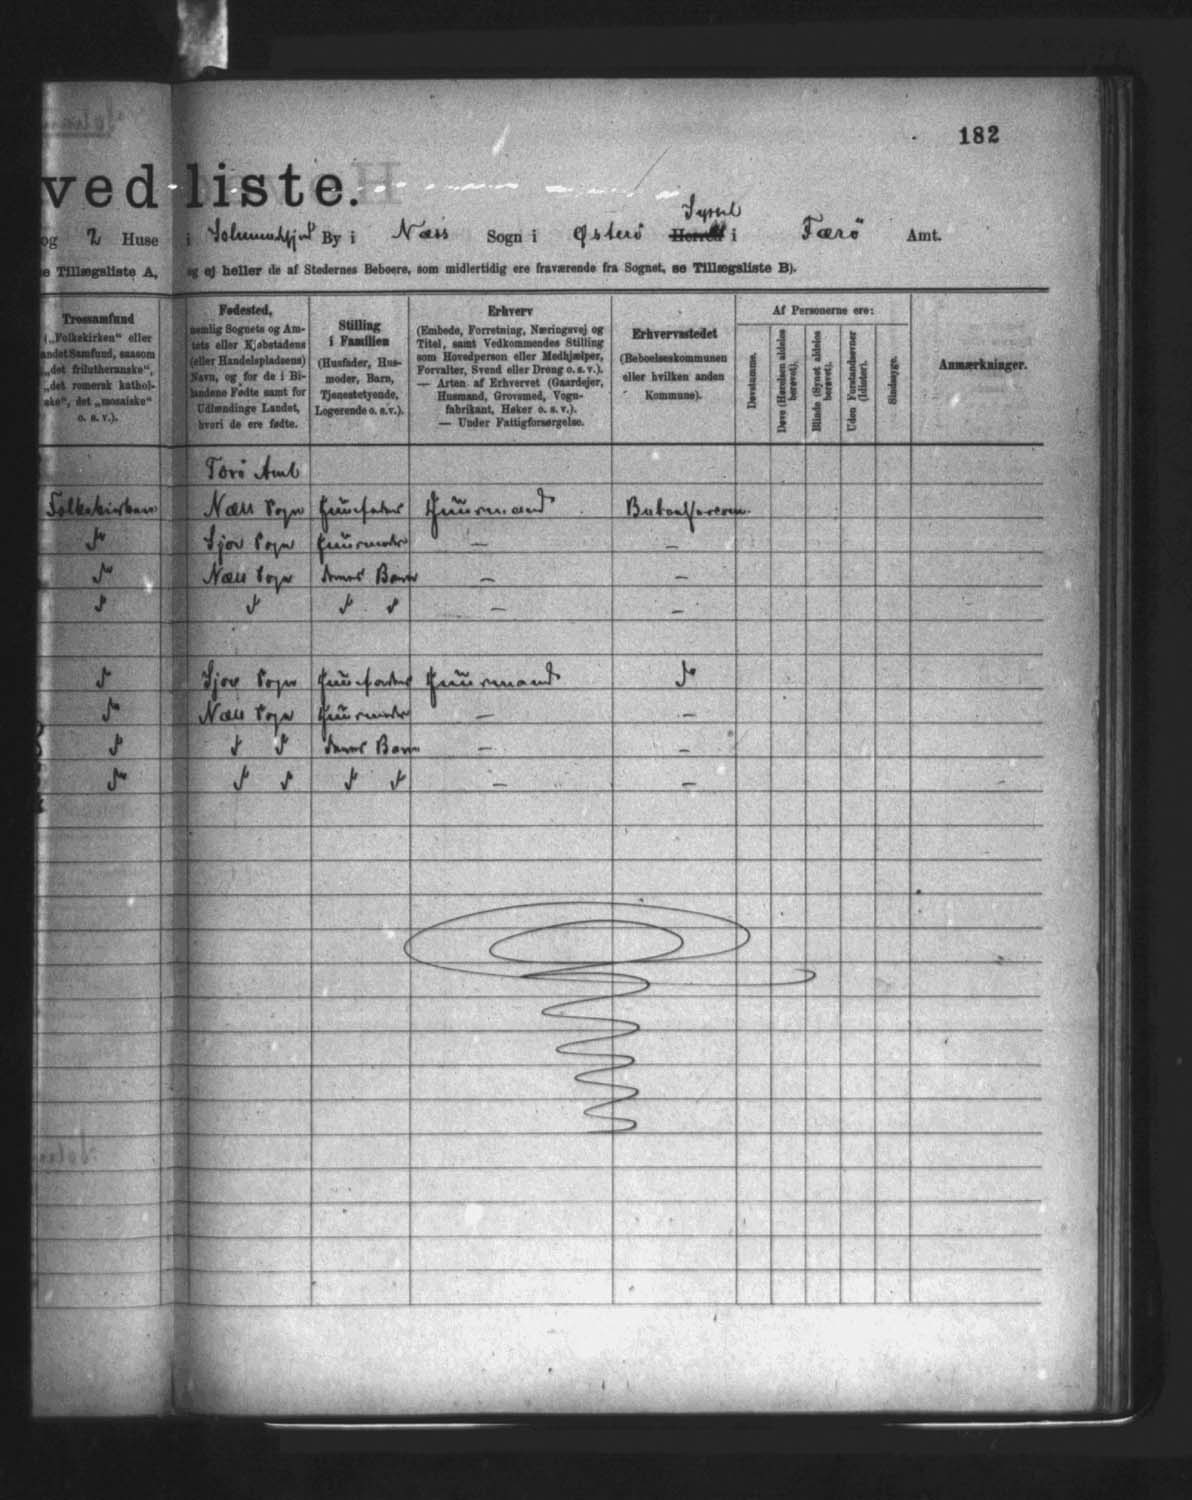 182
ved liste.
Syssel
og 2 Huse i By i Næss Sogn i Østerö Herred i Færö Amt.
e Tillægsliste A, og ej heller de af Stedernes Beboere, som midlertidig ere fraværende fra Sognet, se Tillægsliste B).
Trossamfund
(„Folkekirken“ eller
andet Samfund, saasom
„det frilutheranske“,
„det romersk kathol-
ske“, det „mosaiske“
o. s. v.).
Fødested,
nemlig Sognets og Am-
tets eller Kjøbstadens
(eller Handelspladsens)
Navn, og for de i Bi-
landene Fødte samt for
Udlændinge Landet,
hvori de ere fødte.
Stilling
i Familien
(Husfader, Hus-
moder, Barn,
Tjenestetyende,
Logerende o. s. v.).
Erhverv
(Embede, Forretning, Næringsvej og
Titel, samt Vedkommendes Stilling
som Hovedperson eller Medhjælper,
Forvalter, Svend eller Dreng o. s. v.).
— Arten af Erhvervet (Gaardejer,
Husmand, Grovsmed, Vogn-
fabrikant, Høker o. s. v.).
— Under Fattigforsørgelse.
Erhvervsstedet
(Beboelseskommunen
eller hvilken anden
Kommune).
Af Personerne ere:
Døvstumme.
Døve (Hørelsen aldeles
berøvet).
Blinde (Synet aldeles
berøvet).
Uden Forstandsevner
(Idioter).
Sindssyge.
Anmærkninger.
Færö Amt
Folkekirken Næss Sogn Huusfader Huusmand
Sjov Sogn Huusmoder — —
Næss Sogn deres Barn — —
— —
Sjov Sogn Huusfader Huusmand
Næss Sogn Huusmoder — —
deres Barn — —
— —